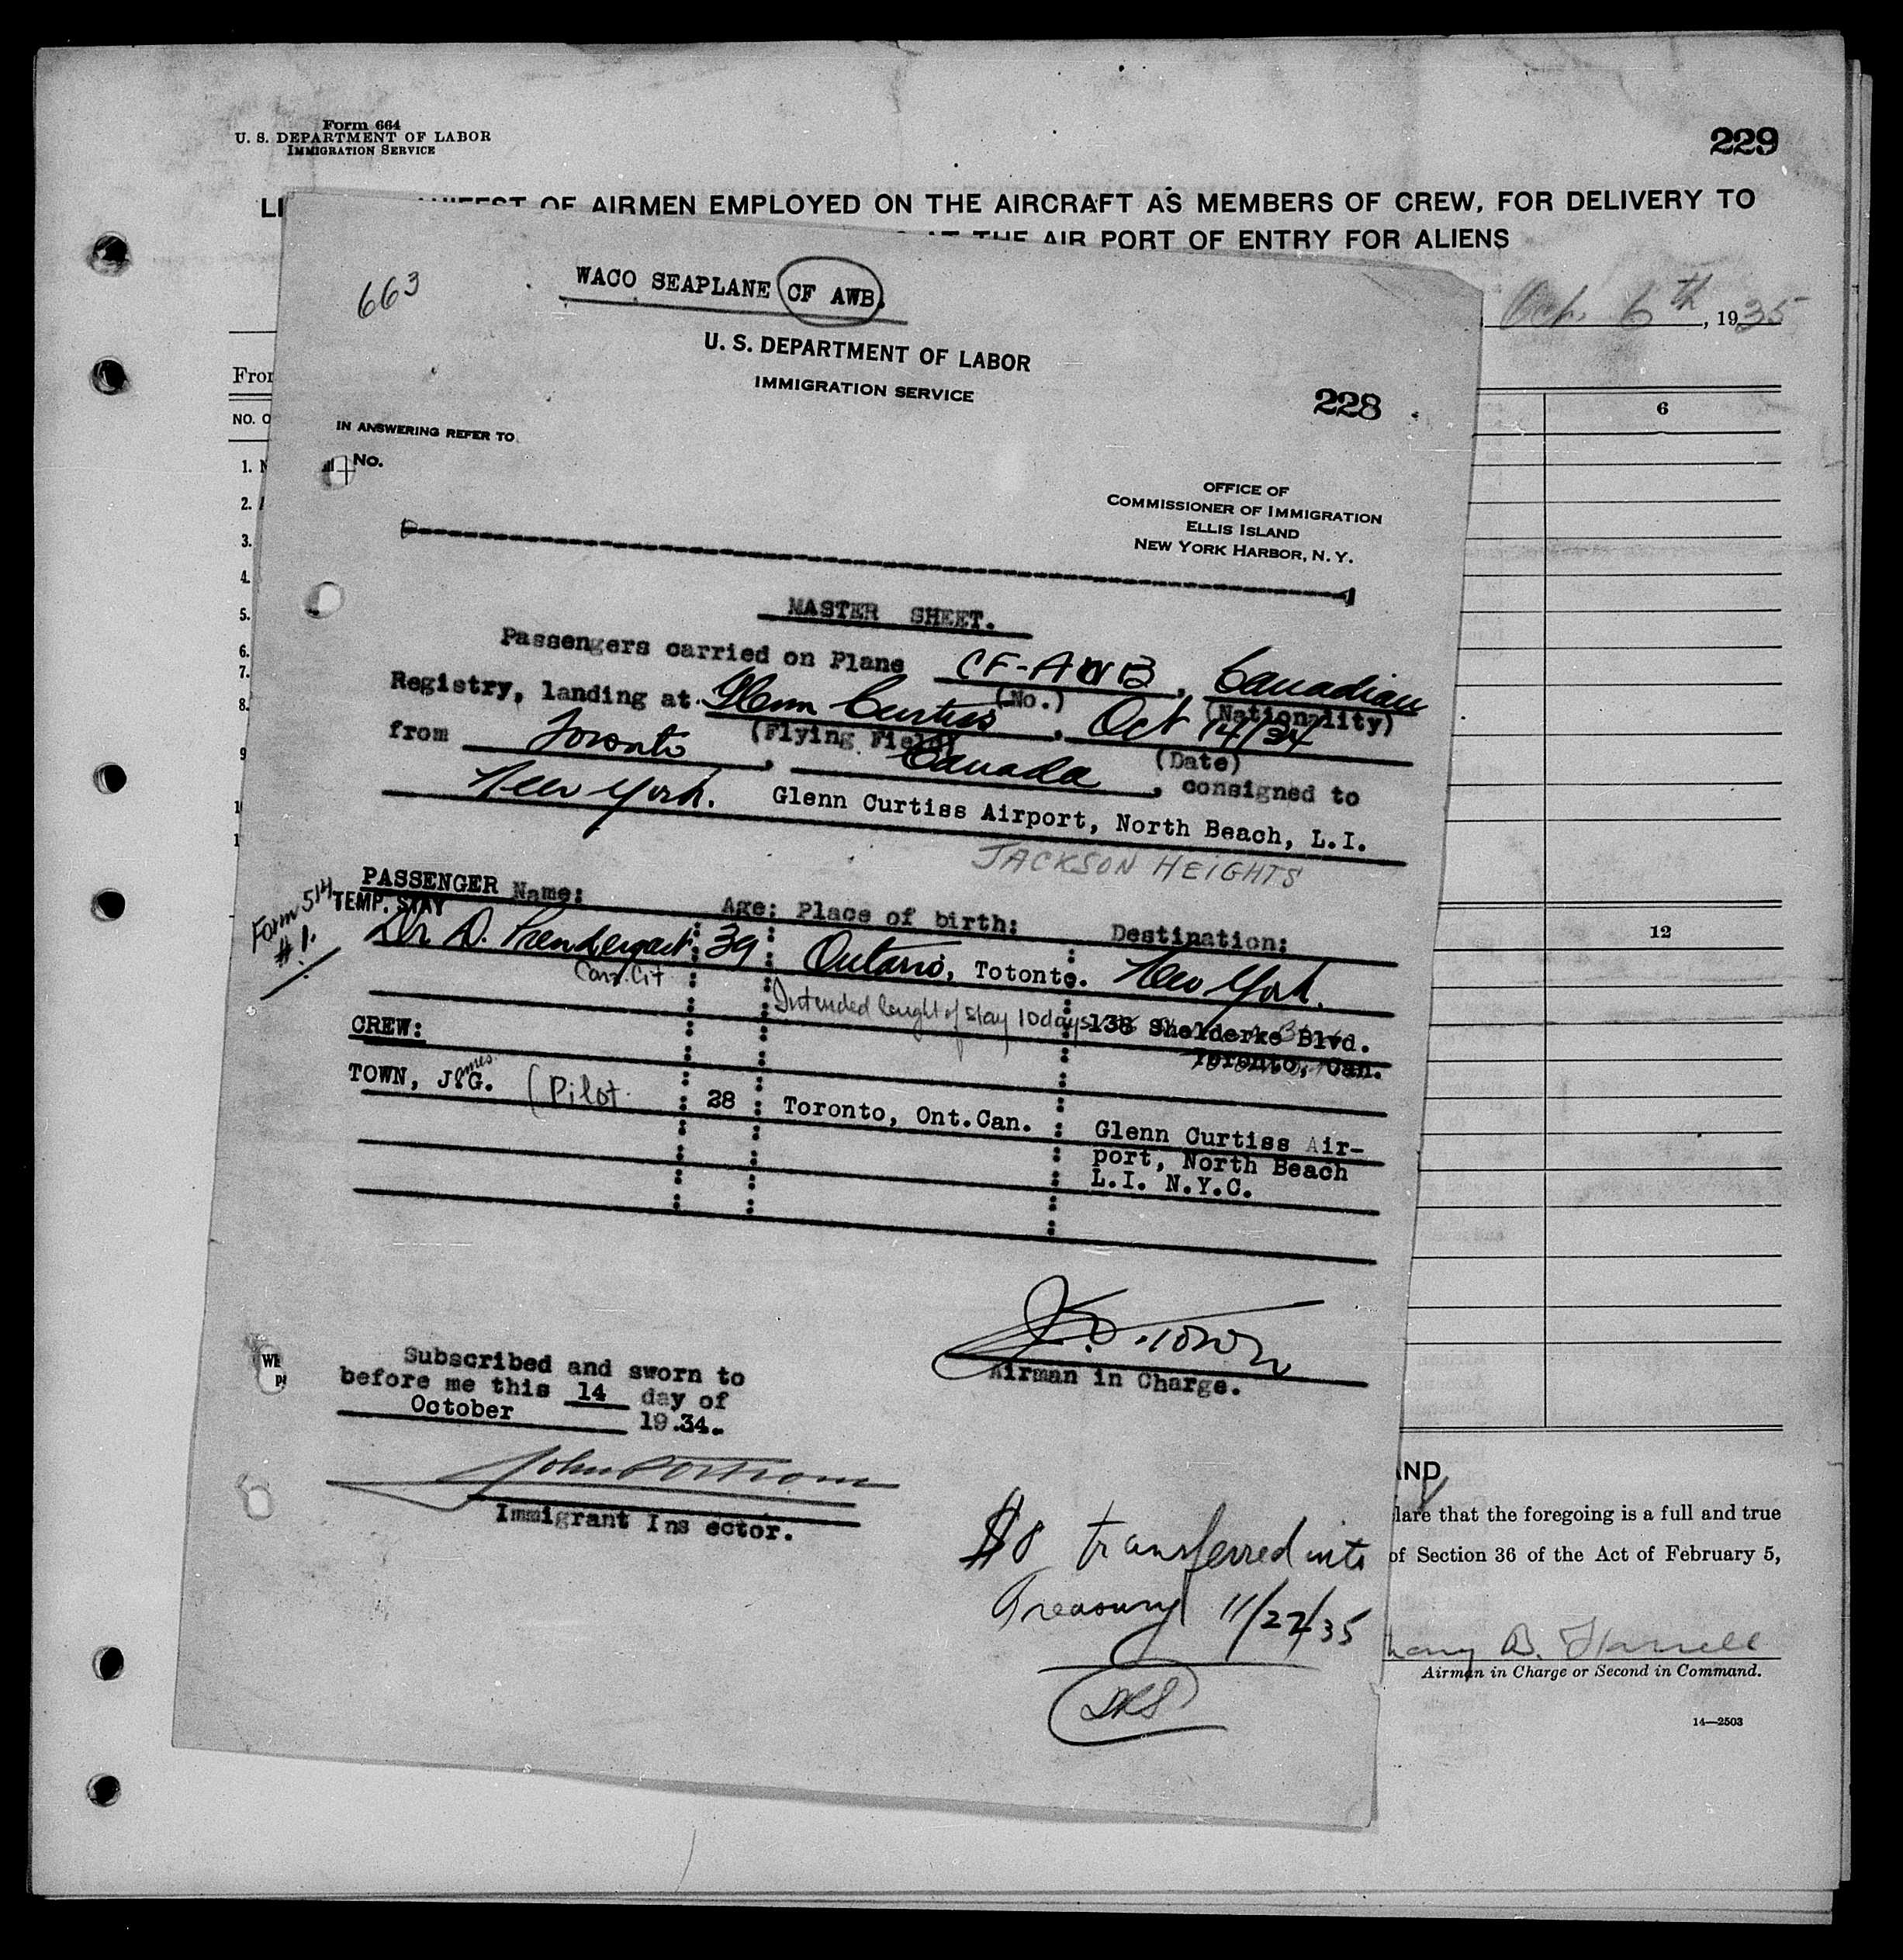 Form 664
U. S. DEPARTMENT OF LABOR
IMMIGRATION SERVICE
229
OF AIRMEN EMPLOYED ON THE AIRCRAFT AS MEMBERS OF CREW, FOR DELIVERY TO
AT THE AIR PORT OF ENTRY FOR ALIENS
Oct. 6th, 1935
663
WACO SEAPLANE CF AWB.
U. S. DEPARTMENT OF LABOR
IMMIGRATION SERVICE
228
IN ANSWERING REFER TO
No.
OFFICE OF
COMMISSIONER OF IMMIGRATION
ELLIS ISLAND
NEW YORK HARBOR, N. Y.
MASTER SHEET.
Passengers carried on Plane CF-AWB, Canadian
(No.) (Nationality)
Registry, landing at Glenn Curtiss, Oct 14/34
(Flying Field) (Date)
from Toronto, Canada, consigned to
New York. Glenn Curtiss Airport, North Beach, L.I.
JACKSON HEIGHTS
PASSENGER Name: Age: Place of birth: Destination:
Form 514 #1.
TEMP. STAY
Dr D. Prendergast 39 Ontario, Totonto. New York.
Can. Cit
Intended lenght of stay 10 days 138 Blvd.
Toronto, Can.
CREW:
TOWN, J.G. James (Pilot 28 Toronto, Ont.Can. Glenn Curtiss Air-
port, North Beach
L.I. N.Y.C.
J.G. Town
Airman in Charge.
Subscribed and sworn to
before me this 14 day of
October 19.34.
John
Immigrant Ins ector.
$8 transferred into
Treasury 11/22/35
From
NO. O
1. N
2. A
3.
4.
5.
6.
7.
8.
9
1
1
6
12
AND
lare that the foregoing is a full and true
of Section 36 of the Act of February 5,
B.
Airman in Charge or Second in Command.
14—2503